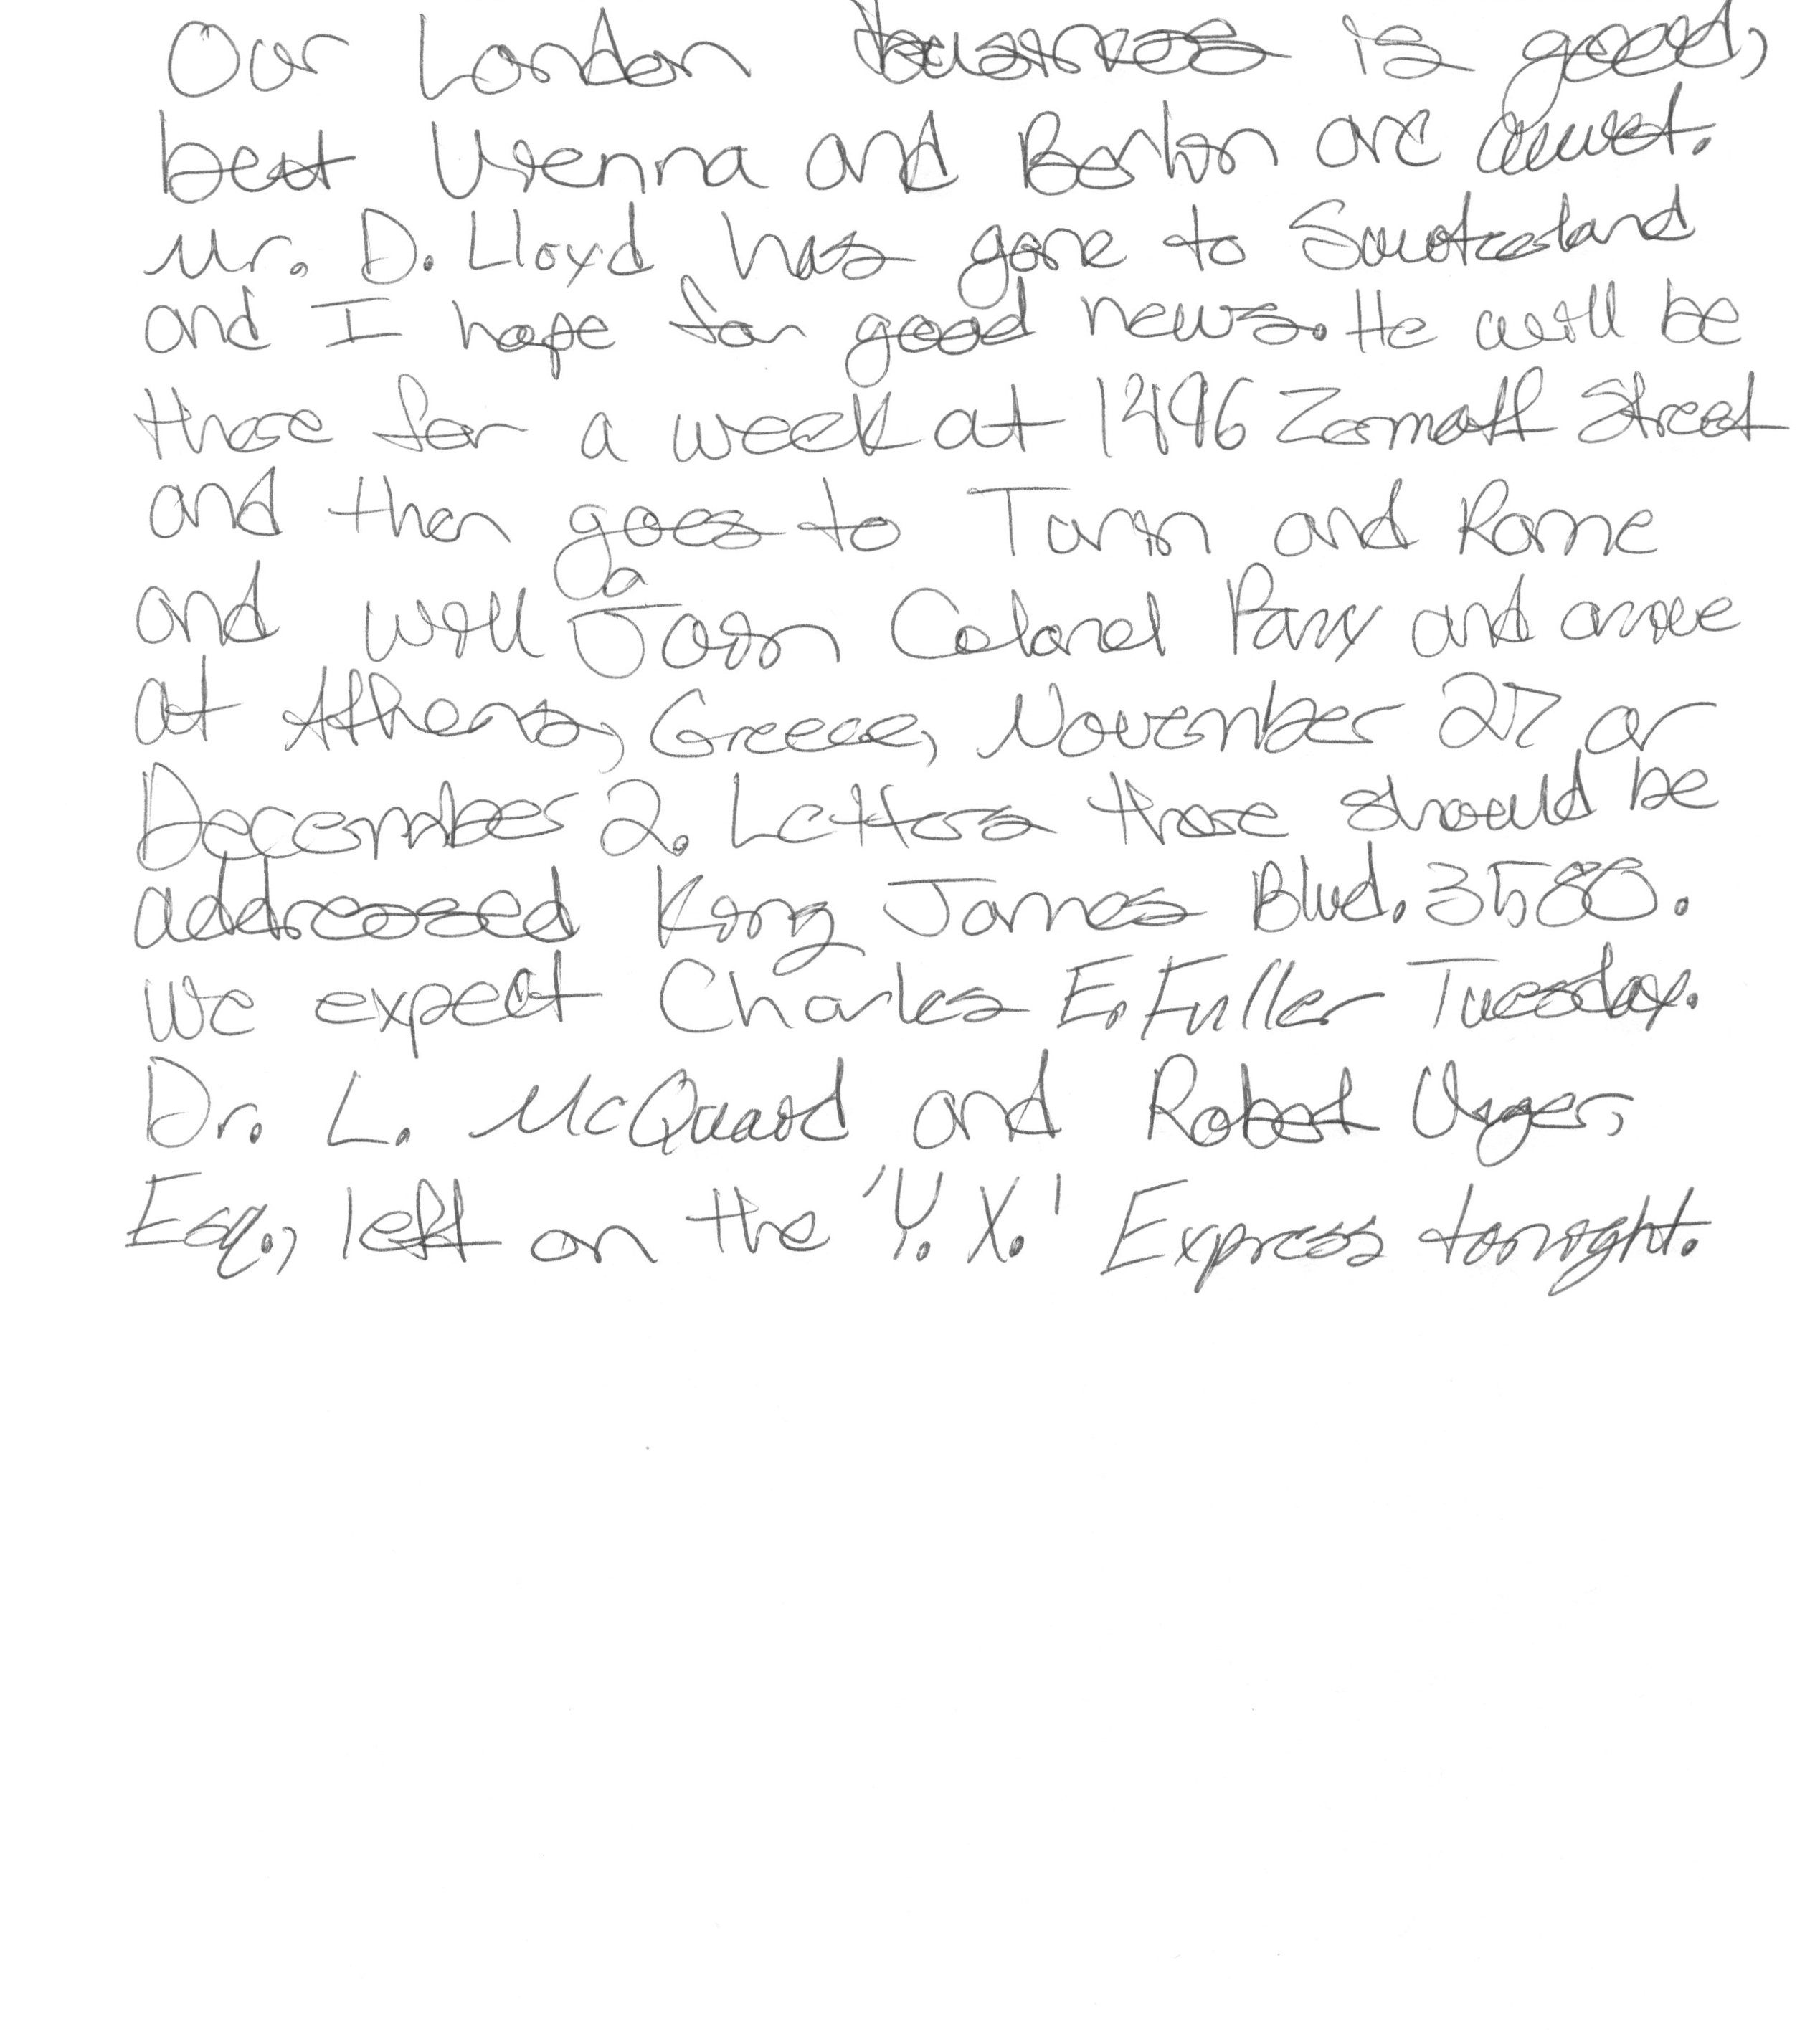 Our London business is good,
but Vienna and Berlin are quiet.
Mr. D. Lloyd has gone to Switzerland
and I hope for good news. He will be
there for a week at 1496 Zermott Street
and then goes to Turin and Rome
and will Join Colonel Parry and arrive
at Athens, Greece, November 27 or
December 2. Letters there should be
addressed King James Blvd. 3580.
We expect Charles E. Fuller Tuesday.
Dr. L. McQuaid and Robert Unger,
Esq., left on the 'Y. X.' Express tonight.